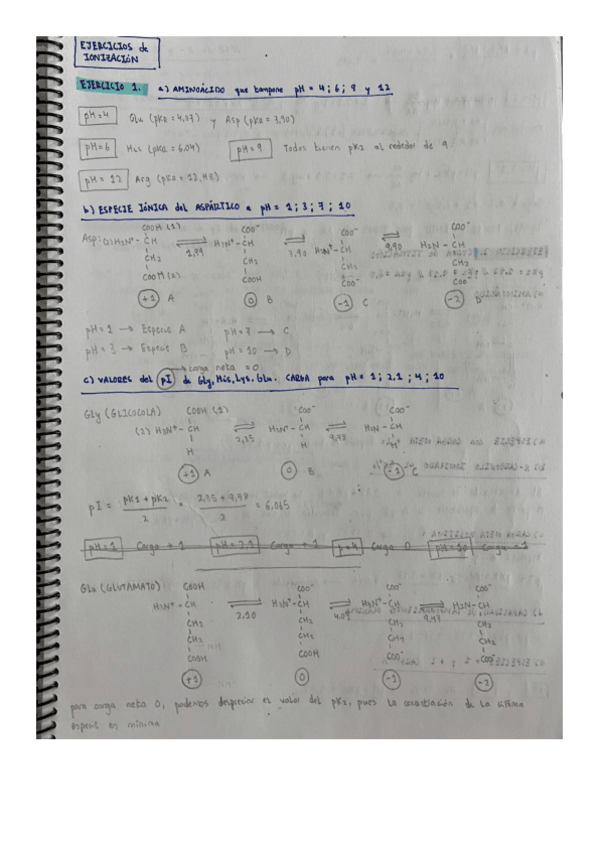 EJERCICIOS de
IONIZACIÓN
EJERCICIO 1. a) AMINOÁCIDO que tampone pH = 4; 6; 9 y 12
pH=4 Glu (pKa = 4,07) y Asp (pKa = 3,90)
pH=6 His (pKa = 6,04) pH=9 Todos tienen pK2 al rededor de 9.
pH = 12 Arg (pKa = 12,48)
b) ESPECIE IÓNICA del ASPÁRTICO a pH = 1; 3; 7; 10
COOH (1) COO⁻ COO⁻ COO⁻
Asp: H3N⁺ - CH H3N⁺ - CH H3N⁺ - CH H2N - CH
1,99 3,90 9,90
CH2 CH2 CH2 CH2
COOH (2) COOH COO⁻ COO⁻
+1 A 0 B -1 C -2 D
pH = 1 → Especie A pH = 7 → C
pH = 3 → Especie B pH = 10 → D
→ carga neta = 0
c) VALORES del pI de Gly, His, Lys, Glu. CARGA para pH = 1; 2,1; 4; 10
Gly (GLICOCOLA) COOH (1) COO⁻ COO⁻
(2) H3N⁺ - CH H3N⁺ - CH H2N - CH
2,35 9,78
H H H
+1 A 0 B -1 C
pI = pK1 + pK2 / 2 = 2,35 + 9,78 / 2 = 6,065
pH=1 Carga +1 pH=2,1 Carga +1 pH=4 Carga 0 pH=10 Carga -1
Glu (GLUTAMATO) COOH COO⁻ COO⁻ COO⁻
H3N⁺ - CH H3N⁺ - CH H3N⁺ - CH H2N - CH
2,10 4,07 9,47
CH2 CH2 CH2 CH2
CH2 CH2 CH2 CH2
COOH COOH COO⁻ COO⁻
+1 0 -1 -2
para carga neta 0, podemos despreciar el valor del pK2, pues la concentración de la última
especie es mínima